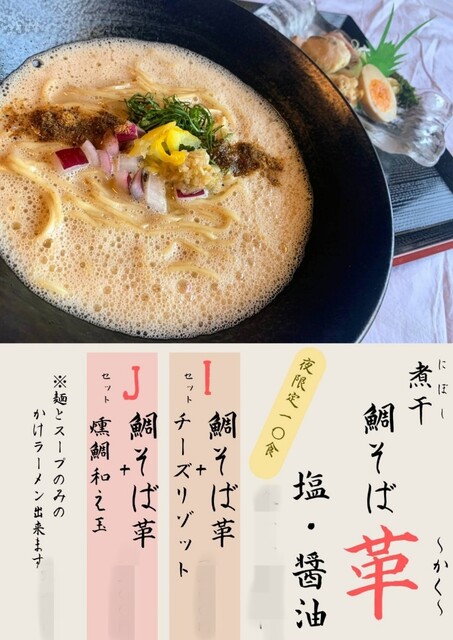 煮干
にぼし
鯛そば 革
～かく～
塩・醤油
夜限定一〇食
I
セット
鯛そば革
+
チーズリゾット
J
セット
鯛そば革
+
燻鯛和え玉
※麺とスープのみの
かけラーメン出来ます